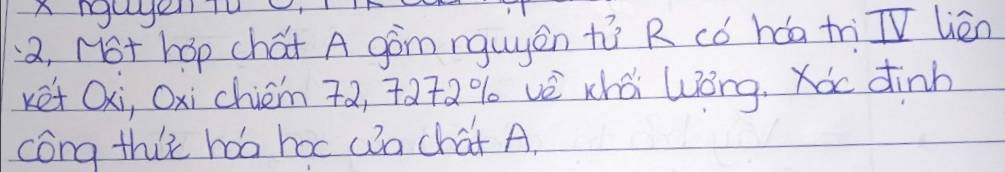 2, Một hợp chất A gồm nguyên tử R có hóa trị IV liên
kết Oxi, Oxi chiếm 72,7272% về khối lượng. Xác định
công thức hóa học của chất A.